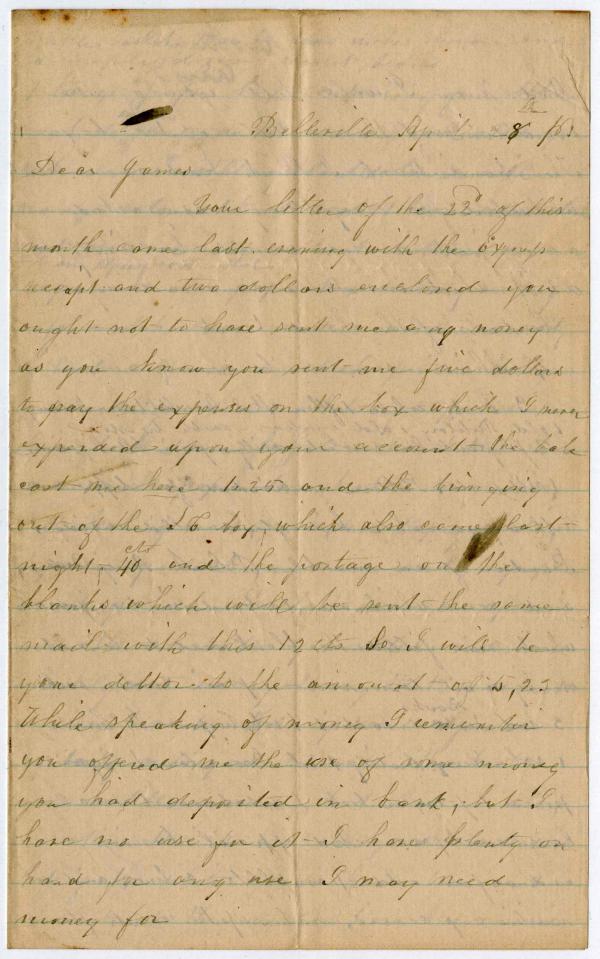 Belleville April 28th /63
Dear James
Your letter of the 22d of this
month came last evening with the express
reciept and two dollars enclosed you
ought not to have sent me any money
as you know you sent me five dollars
to pay the expenses on the box which I never
expended upon your account the bale
cost me here 1.25 and the bringing
out of the box, which also came last
night, 40 cts and the postage on the
blanks which will be sent the same
mail with this 12 cts So I will be
your debtor to the amount of 5,23
While speaking of money I remember
you offered me the use of some money
you had deposited in bank, but I
have no use for it I have plenty on
hand for any use I may need
money for